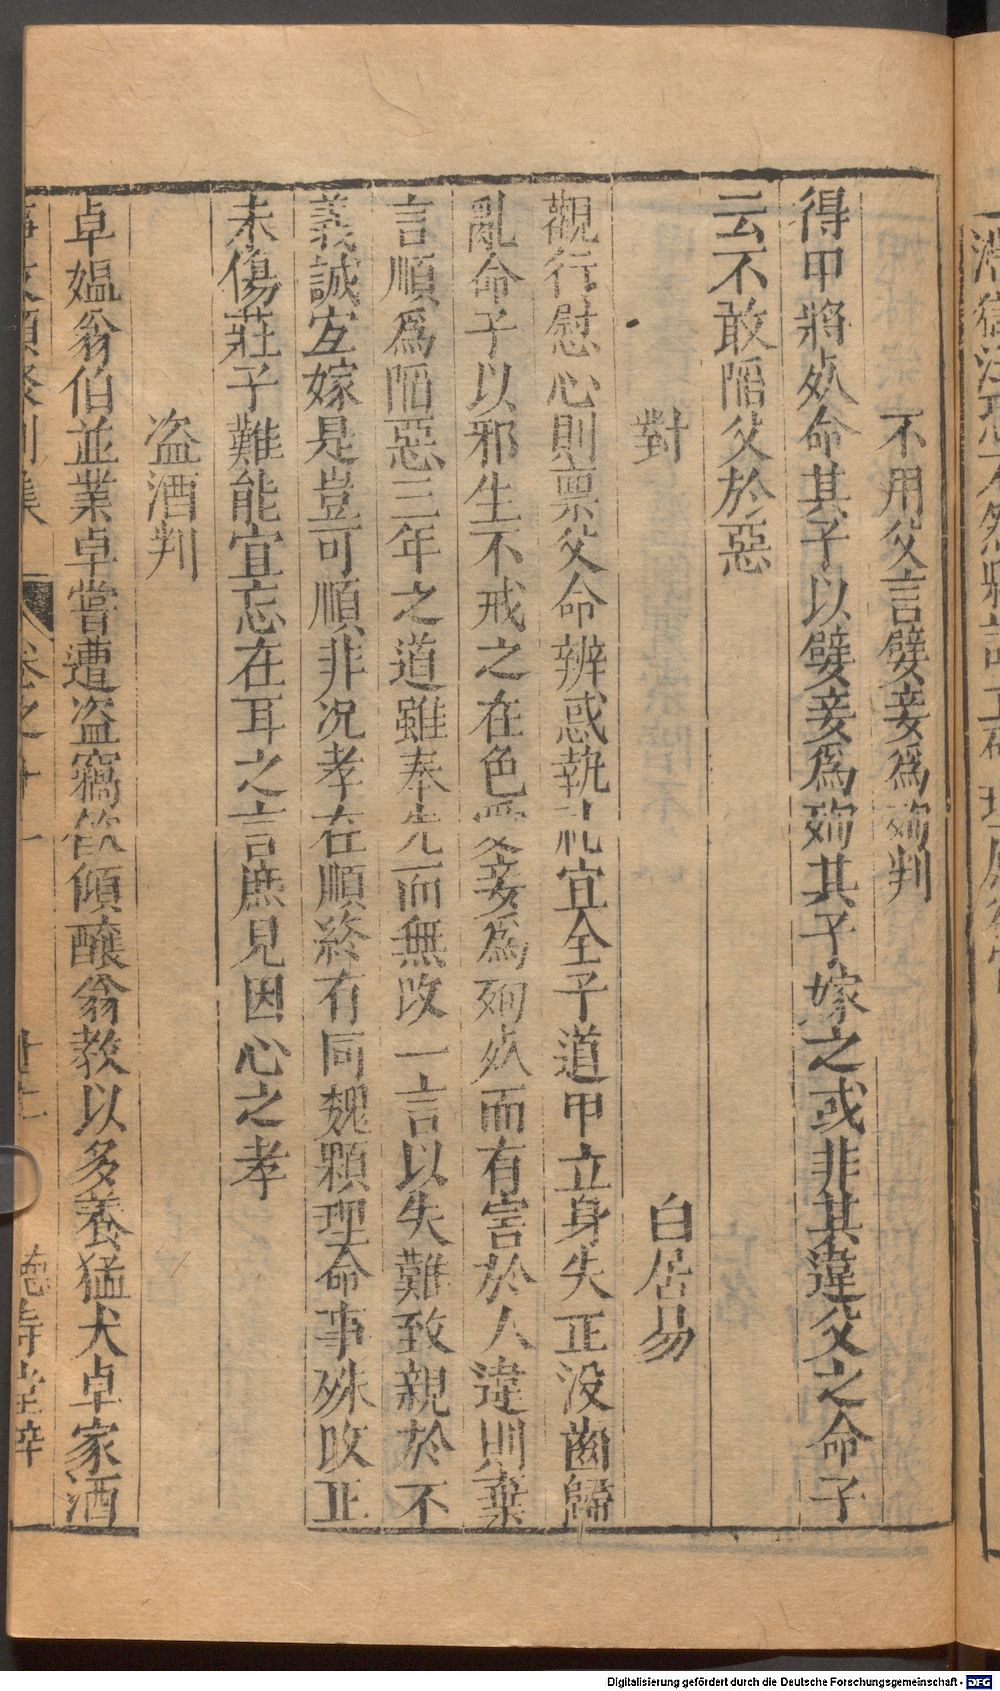 不用父言嬖妾爲殉判
得甲將死命其子以嬖妾爲殉其子嫁之或非其違父之命子
云不敢陷父於惡
對　白居易
觀行慰心則禀父命辨惑執礼宜全子道甲立身失正没齒歸
亂命子以邪生不戒之在色愛妾爲殉死而有害於人違則棄
言順爲陷惡三年之道雖奉先而無改一言以失難致親於不
義誠宜嫁是豈可順非况孝在順終有同魏顆理命事殊改正
未傷莊子難能宜忘在耳之言庶見因心之孝
盗酒判
卓媪翁伯並業卓嘗遭盗竊飲傾醸翁教以多養猛犬卓家酒
卷之廿一
廿二
德壽堂梓
Digitalisierung gefördert durch die Deutsche Forschungsgemeinschaft - DFG